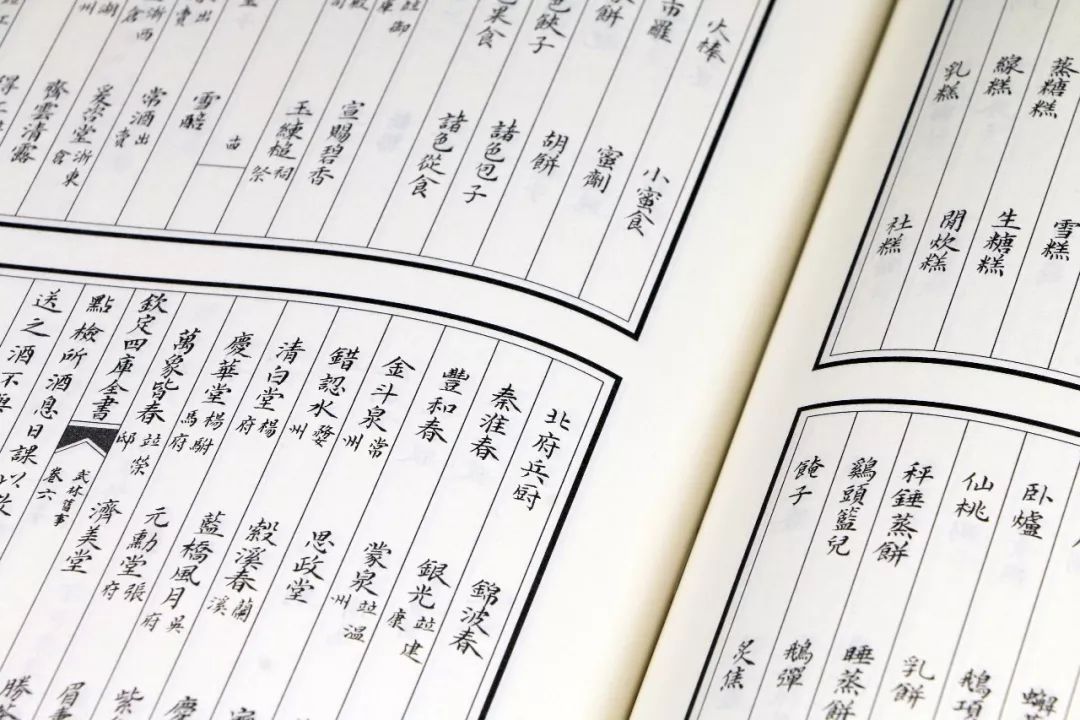 雪糕
蒸糖糕 生糖糕
線糕 閒炊糕
乳糕 社糕
臥爐 鵝項
仙桃 乳餅
秤錘蒸餅 睡蒸餅
雞頭籃兒 鵝彈
餣子 炙焦
火棒 小蜜食
市羅 蜜劑
餅 胡餅
色餃子 諸色包子
色果食 諸色從食
宣賜碧香
玉練槌祠祭
雪醅
出賣 常酒出賣
浙西倉 爰咨堂浙東倉
湖州 齊雲清露
北府兵廚 錦波春
秦淮春 銀光並建康
豐和春 蒙泉並溫州
金斗泉常州 思政堂
錯認水婺州 穀溪春蘭溪
清白堂楊府 藍橋風月吳府
慶華堂楊駙馬府 元勳堂張府
萬象皆春並榮邸 濟美堂
欽定四庫全書 武林舊事 卷六
點檢所酒息日課以
送之酒不